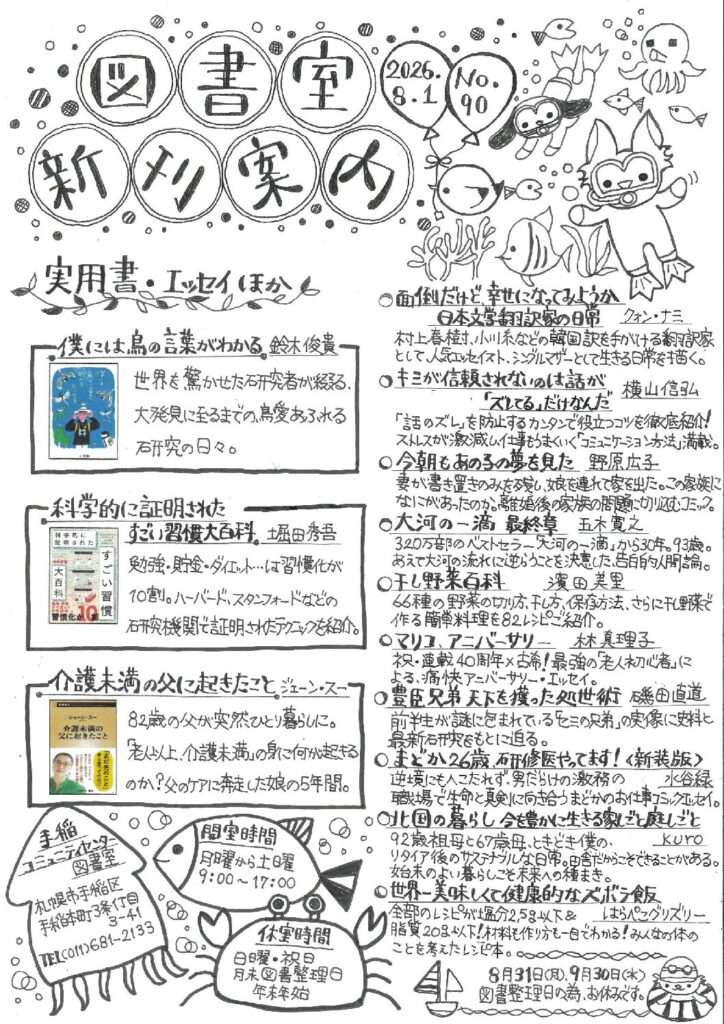 図書室
新刊案内
2026.
8.1
No.
90
実用書・エッセイほか
僕には鳥の言葉がわかる 鈴木俊貴
世界を驚かせた研究者が綴る、
大発見に至るまでの、鳥愛あふれる
研究の日々。
科学的に証明された
すごい習慣大百科 堀田秀吾
科学的に
証明された
すごい習慣
大百科
習慣化が
10割
勉強・貯金・ダイエット…は習慣化が
10割。ハーバード、スタンフォードなどの
研究機関で証明されたテクニックを紹介。
介護未満の父に起きたこと ジェーン・スー
ジェーン・スー
介護未満の
父に起きたこと
82歳の父が突然ひとり暮らしに。
「老人以上、介護未満」の身に何が起きる
のか?父のケアに奔走した娘の5年間。
手稲
コミュニティセンター
図書室
札幌市手稲区
手稲本町3条1丁目
3-41
TEL(011)681-2133
開室時間
月曜から土曜
9:00〜17:00
休室時間
日曜・祝日
月末図書整理日
年末年始
○面倒だけど、幸せになってみようか
日本文学翻訳家の日常 クォン・ナミ
村上春樹、小川糸などの韓国訳を手がける翻訳家
として、人気エッセイスト、シングルマザーとして生きる日常を描く。
○キミが信頼されないのは話が
「ズレてる」だけなんだ 横山信弘
「話のズレ」を防止するカンタンで役立つコツを徹底紹介!
ストレスが激減し仕事もうまくいく「コミュニケーション方法」満載。
○今朝もあの子の夢を見た 野原広子
妻が書き置きのみを残し、娘を連れて家を出た。この家族に
なにがあったのか。離婚後の家族の問題に切り込むコミック。
○大河の一滴 最終章 五木寛之
320万部のベストセラー「大河の一滴」から30年。93歳。
あえて大河の流れに逆らうことを決意した、告白的人間論。
○干し野菜百科 濱田美里
66種の野菜の切り方、干し方、保存方法、さらに干し野菜で
作る簡単料理を82レシピご紹介。
○マリコ、アニバーサリー 林真理子
祝・連載40周年×古希!最強の「老人初心者」に
よる、痛快アニバーサリー・エッセイ。
○豊臣兄弟 天下を獲った処世術 磯田道史
前半生が謎に包まれている「三の兄弟」の実像に史料と
最新研究をもとに迫る。
○まどか26歳、研修医やってます!〈新装版〉
逆境にもへこたれず、男だらけの激務の 水谷緑
職場で生命と真剣に向き合うまどかのお仕事コミックエッセイ。
○北国の暮らし 今を豊かに生きる家しごと庭しごと
92歳祖母と67歳母、ときどき僕の kuro
リタイア後のサステナブルな日常。田舎だからこそできることがある。
始末のよい暮らしこそ未来への種まき。
○世界一美味しくて健康的なズボラ飯
全部のレシピが塩分2.5g以下& はらぺこグリズリー
脂質20g以下!材料も作り方も一目でわかる!みんなの体の
ことを考えたレシピ本。
8月31日(月)、9月30日(水)
図書整理日の為、お休みです。